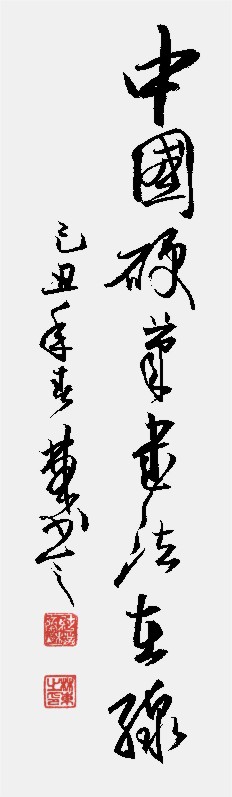 中國硬筆書法在線
己丑年春